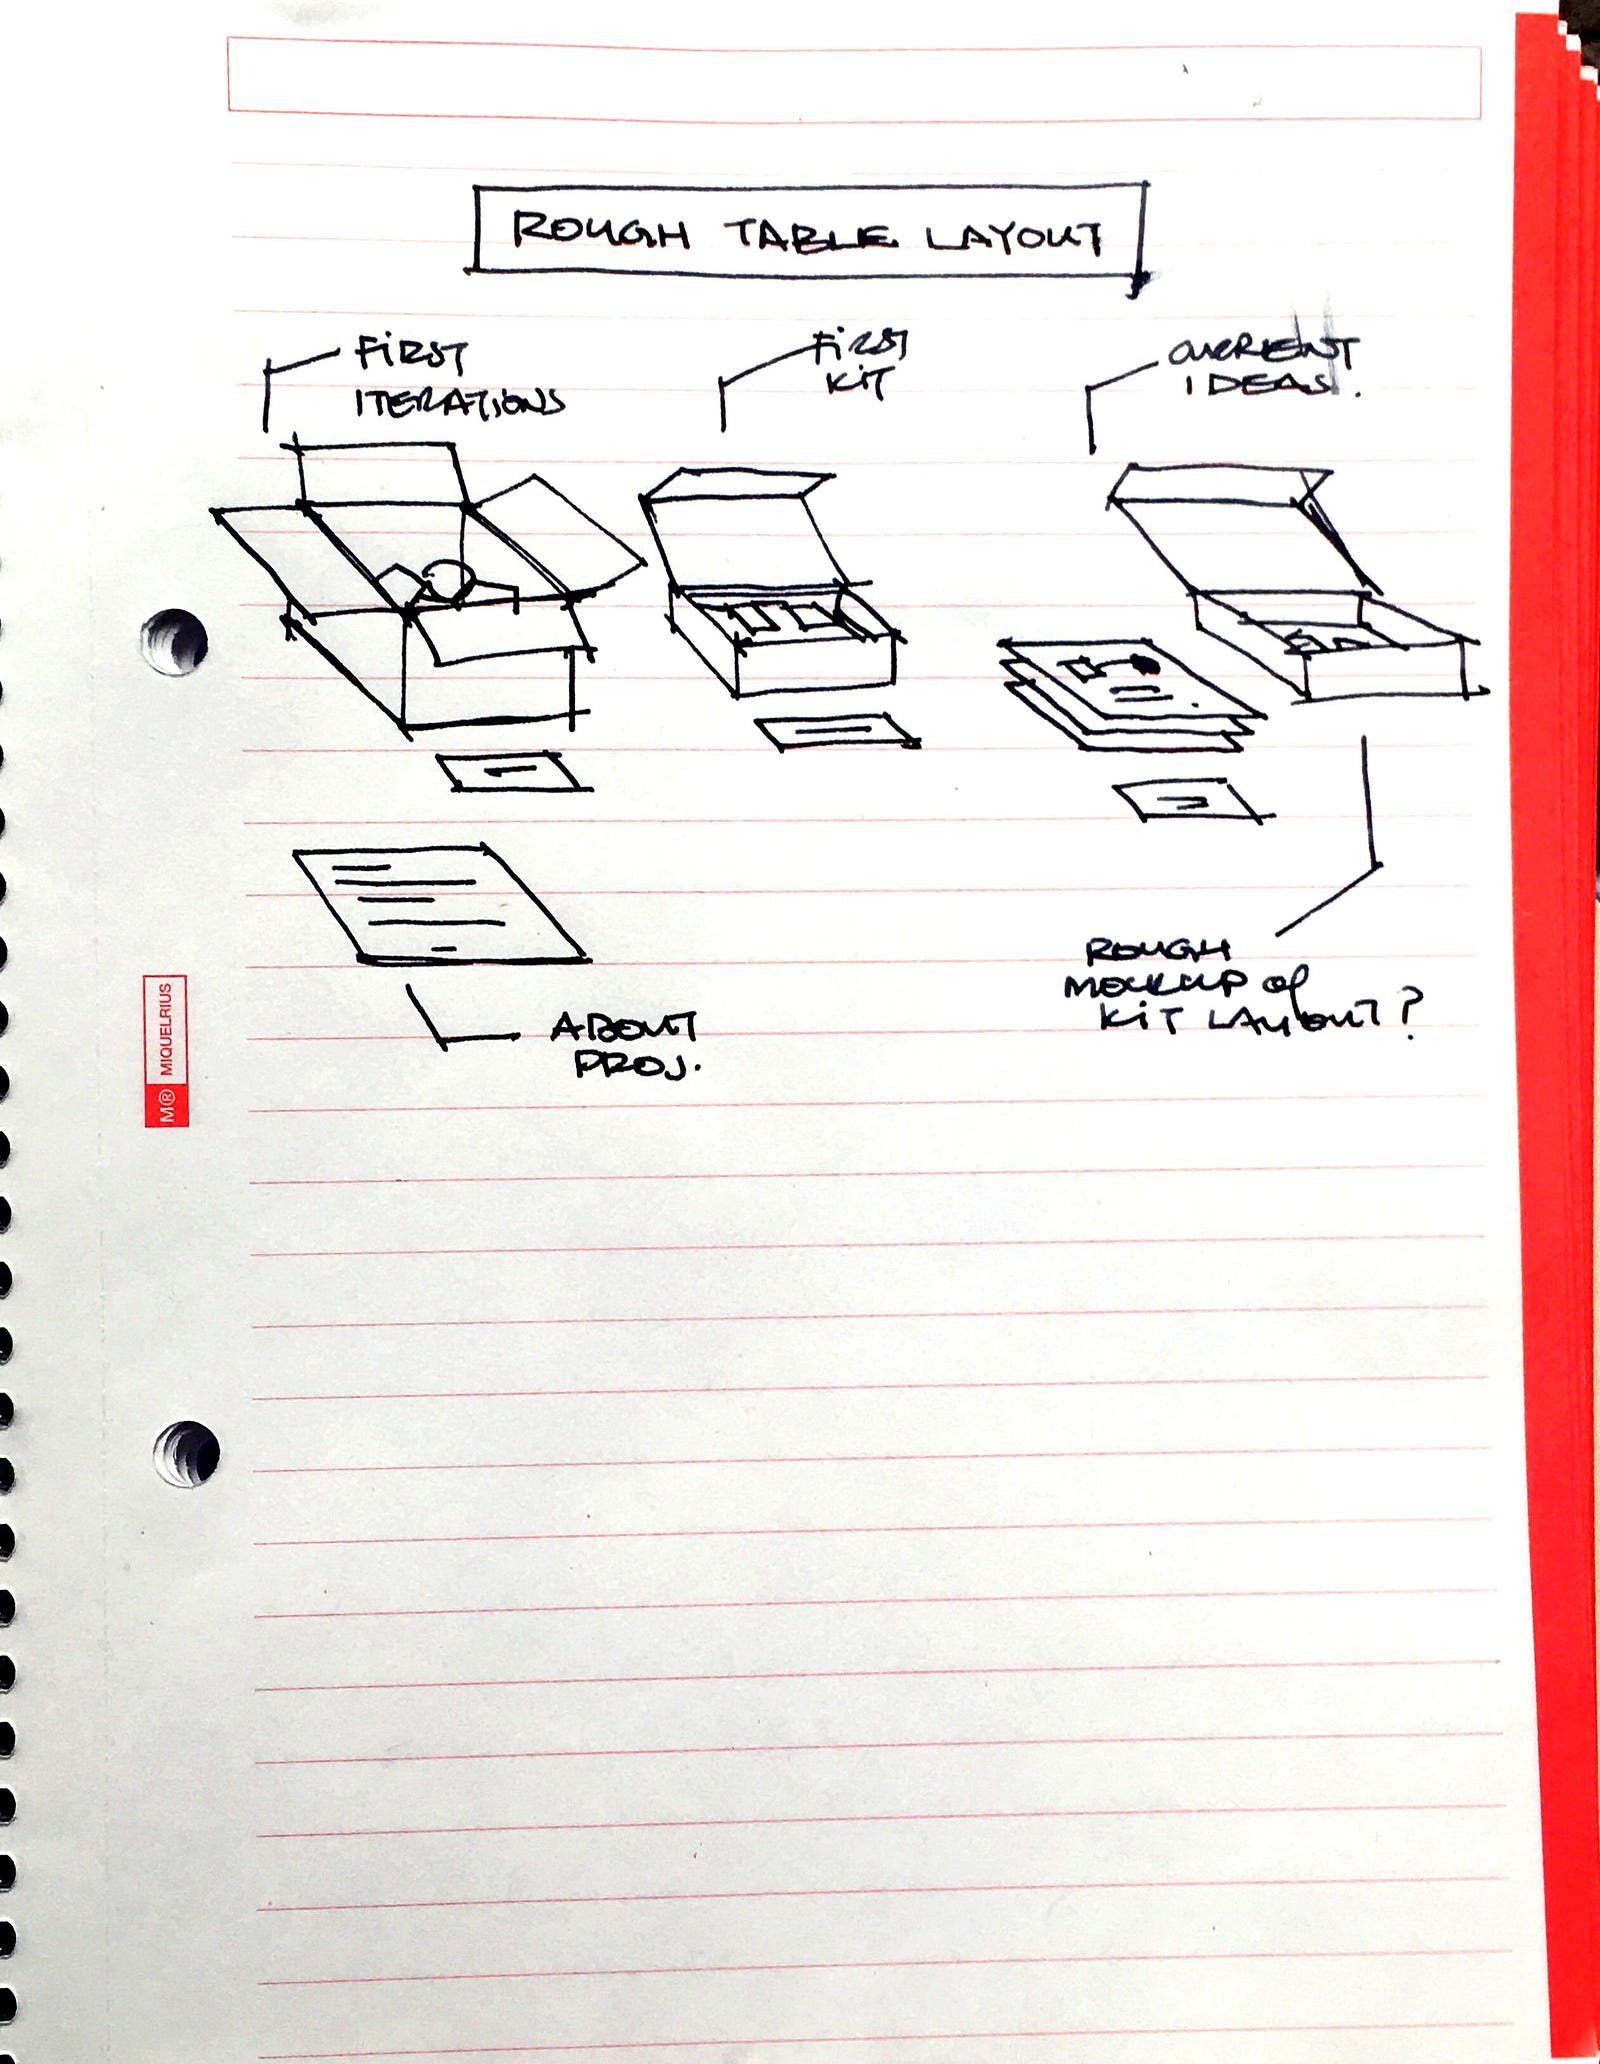 ROUGH TABLE LAYOUT
FIRST
ITERATIONS
FIRST
KIT
CURRENT
IDEAS.
ABOUT
PROJ.
ROUGH
MOCKUP of
KIT LAYOUT?
M® MIQUELRIUS